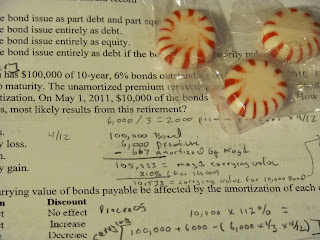 e bond issue as part debt and part equ
e bond issue entirely as debt.
e bond issue entirely as equity.
e bond issue entirely as debt if the b
has $100,000 of 10-year, 6% bonds
o maturity. The unamortized premium
tization. On May 1, 2011, $10,000 of the bonds How
s, most likely results from this retirement?
6,000 / 3 = 2000
s. 4/12 100,000 Bond
y loss. 6,000
n. 667 amortized by May 1
y gain. 105,333 = may 1 carrying value
10,533 = carrying value for 10,000 Bond
arrying value of bonds payable be affected by the amortization of each
t Discount
ct No effect Proceeds 10,000 x 112% =
t Increase
Decrease 100,000 + 6000 - (6,000 x 1/3 x 4/12)